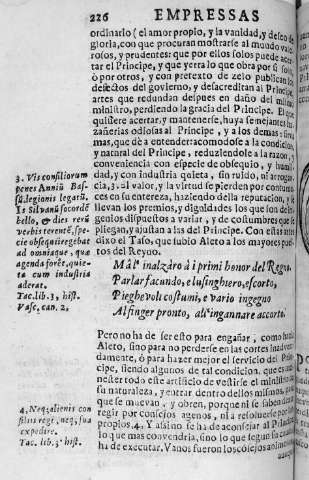 226 EMPRESSAS
ordinario (el amor propio, y la vanidad, y deseo de
gloria, con que procuran mostrarse al mundo valerosos, y prudentes: que por ellos solos puede acertar el Principe, y que yerra lo que obra por si solo,
ò por otros, y con pretexto de zelo publican los
defectos del govierno, y desacreditan al Principe,
artes que redundan despues en daño del mismo
ministro, perdiendo la gracia del Principe. El que
quisiere acertar, y mantenerse, huya semejantes hazañerias odiosas al Principe, y a los demas: sirva
mas, que dè a entender: acomodese a la condicion,
y natural del Principe, reduziendole a la razon, y
conveniencia con especie de obsequio, y humildad, y con industria quieta, sin ruido, ni arrogancia,3. al valor, y la virtud se pierden por contumaces en su entereza, haziendo della reputacion, y se
llevan los premios, y dignidades los que son de ingenios dispuestos a variar, y de costumbres que se
pliegan, y ajustan a las del Principe. Con estas artes
dixo el Taso, que subio Aleto a los mayores puestos del Reyno.
Ma l' inalzáro à i primi honor del Regno.
Parlar facundo, e lusinghiero, e scorto,
Pieghevoli costumi, e vario ingegno
Al finger pronto, al' ingannare accorto.
Pero no ha de ser esto para engañar, como hazia
Aleto, sino para no perderse en las cortes
damente, ò para hazer mejor el servicio del Principe, siendo algunos de tal condicion, que es menester todo este artificio de vestirse el ministro de
su naturaleza, y entrar dentro dellos mismos, para
que se muevan, y obren, porque ni se saben dexar
regir por consejos agenos, ni a resolverse por los
propios.4. Y assi no se ha de aconsejar al Principe
lo que mas convendria, sino lo que segun su
ha de executar. Vanos fueron los
3. Vis consiliorum
penes Anniũ Bassũ, legionis legatũ.
Is Silvanũ socordẽ
bello, & dies rerũ
verbis terentẽ, specie obsequij regebat
ad omniaque, quæ
agenda forẽt, quieta cum industria
aderat.
Tac. lib. 3. hist.
Vase. can. 2.
4. Neq; alienis consilijs regi, neq; sua
expedire.
Tac. lib. 3. hist.